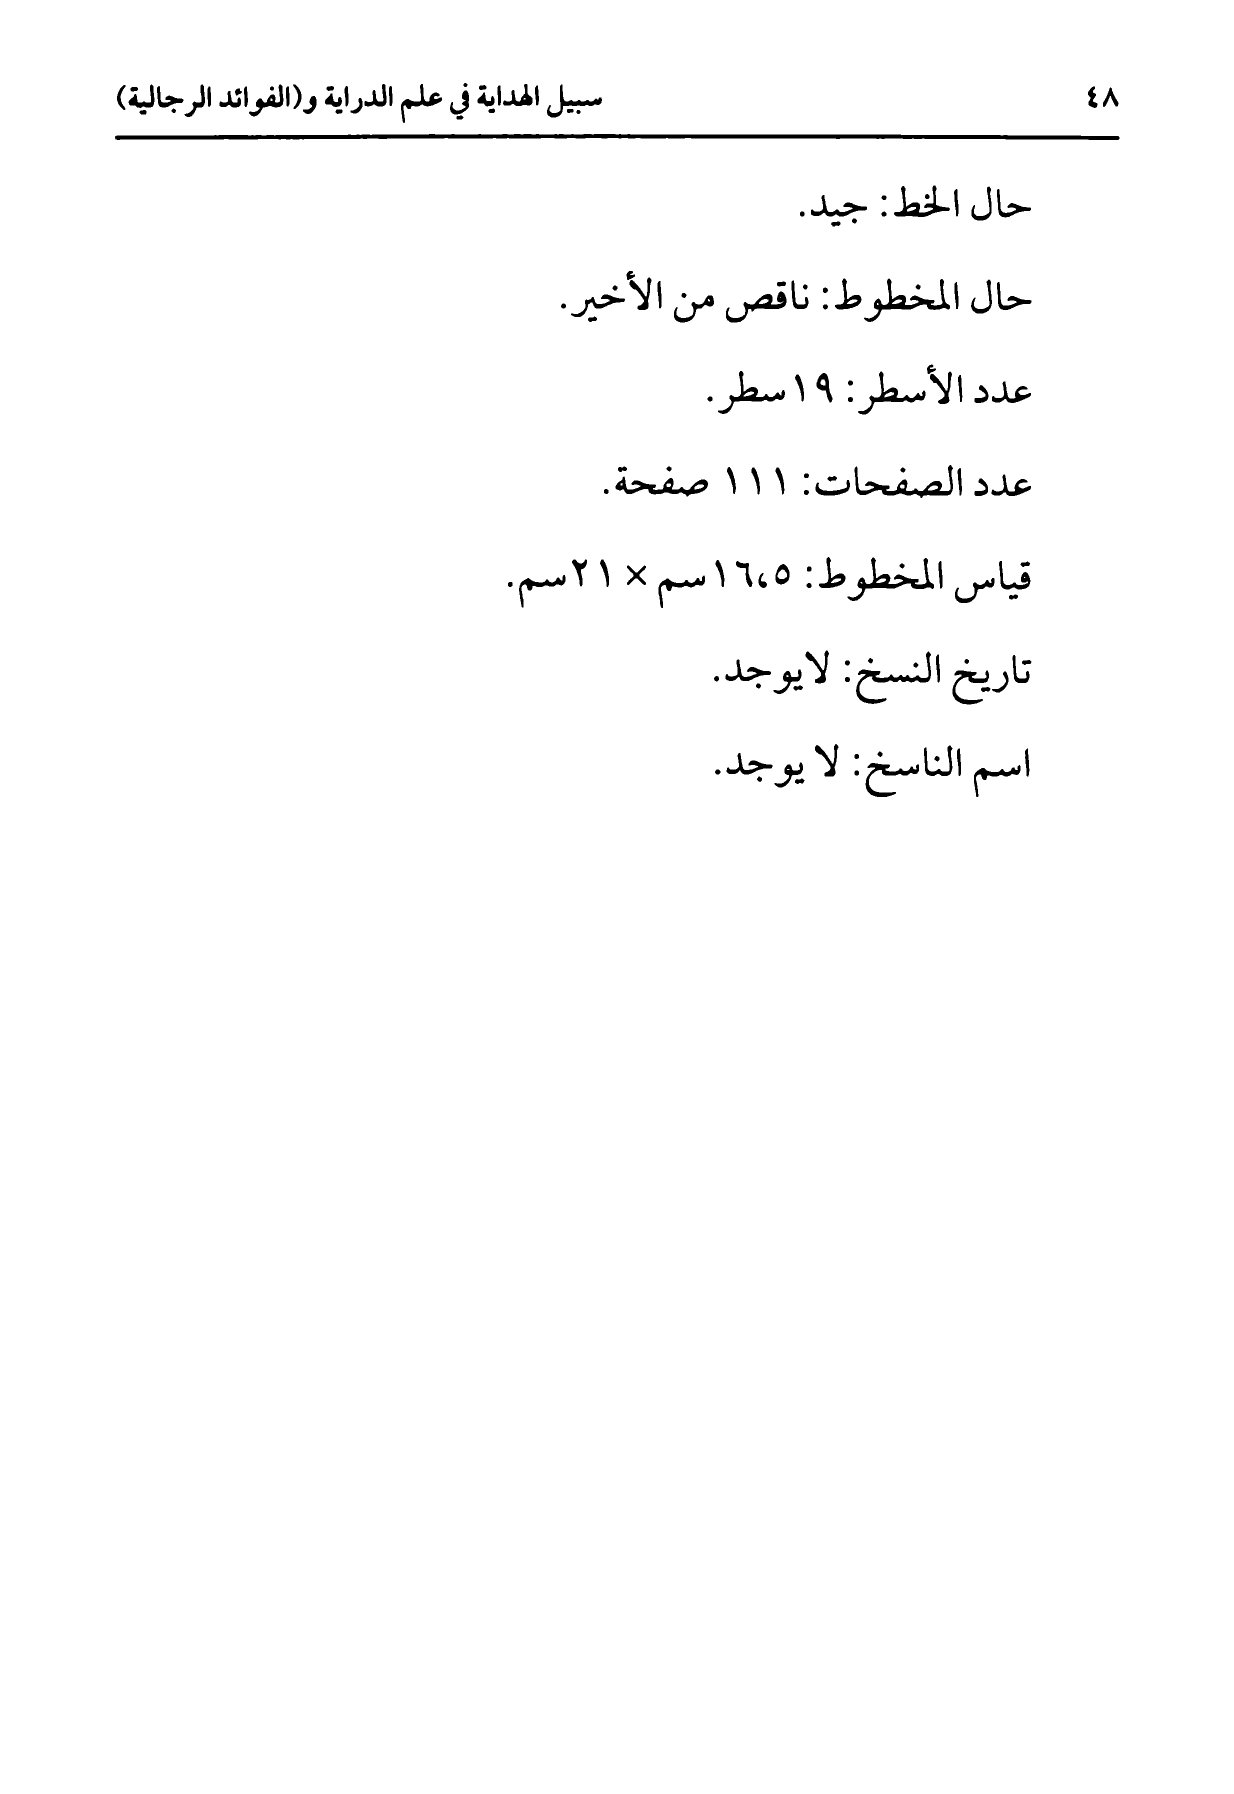 ٤٨ سبيل الهداية في علم الدراية و(الفوائد الرجالية)
حال الخط: جيد.
حال المخطوط: ناقص من الأخير.
عدد الأسطر: ١٩سطر.
عدد الصفحات: ١١١ صفحة.
قياس المخطوط: ١٦،٥سم × ٢١سم.
تاريخ النسخ: لايوجد.
اسم الناسخ: لا يوجد.